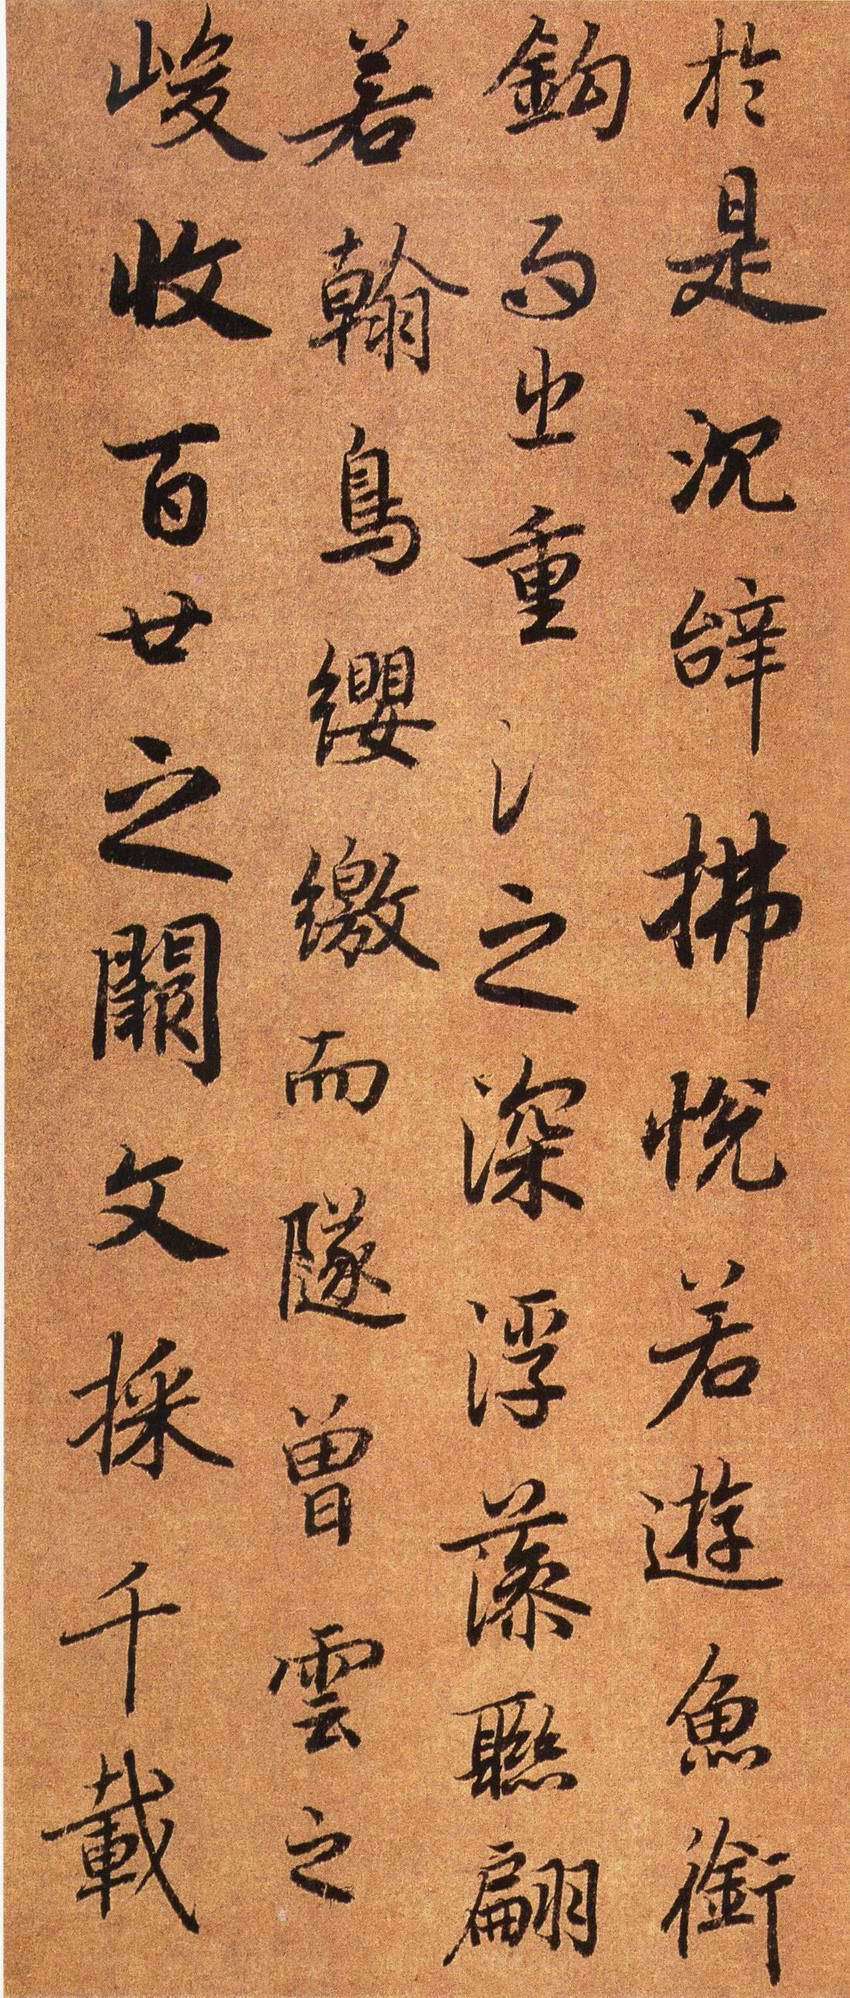 於是沉辭拂悅若遊魚銜
鈎而出重氵之深浮藻聯翩
若翰鳥纓繳而隧曾雲之
峻收百廿之闕文採千載